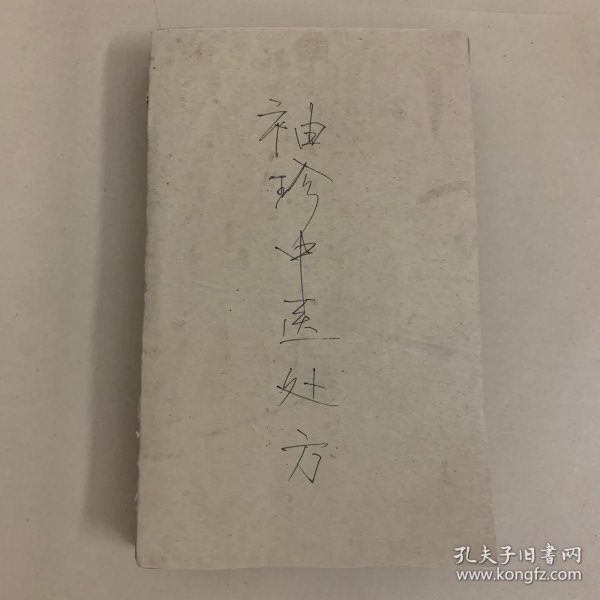 袖珍中医处方
孔夫子旧书网
www.kongfz.com